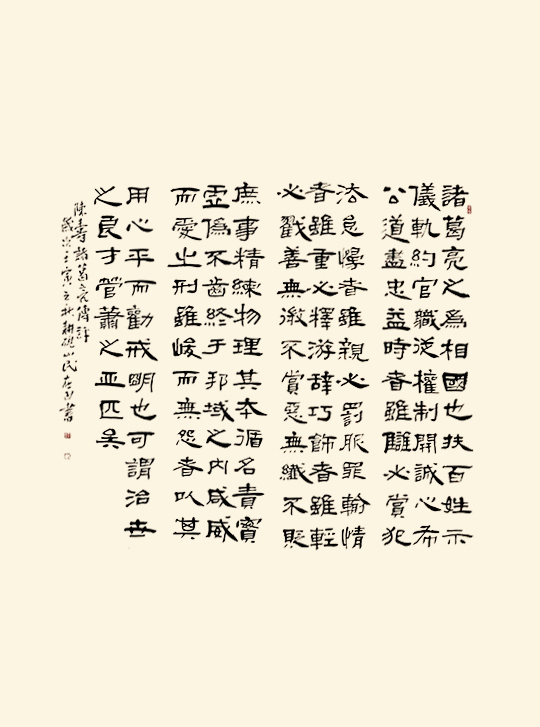 諸葛亮之為相國也扶百姓示
儀軌約官職從權制開誠心布
公道盡忠益時者雖讎必賞犯
法怠慢者雖親必罰服罪輸情
者雖重必釋游辭巧飾者雖輕
必戮善無微不賞惡無纖不貶
庶事精練物理其本循名責實
虛偽不齒終于邦域之內咸威
而愛之刑雖峻而無怨者以其
用心平而勸戒明也可謂治世
之良才管蕭之亞匹矣
陳壽諸葛亮傳評
歲次壬寅之秋耕硯山民書